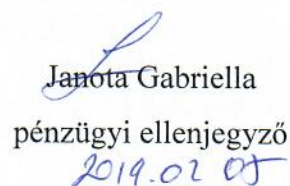 Janota Gabriella
pénzügyi ellenjegyző
2019.02 05